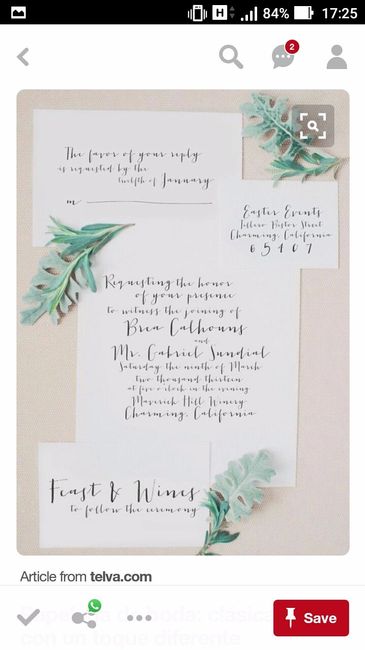 84%
17:25
2
The favor of your reply
is requested by the
twelfth of January
m
Easter Events
Charming, California
65407
Requesting the honor
of your presence
to witness the joining of
Brea Calhouns
and
Mr. Gabriel Sundial
Saturday the ninth of March
two thousand thirteen
at five o'clock in the evening
Maverick Hill Winery
Charming, California
Feast & Wines
to follow the ceremony
Article from telva.com
Save
con un toque diferente